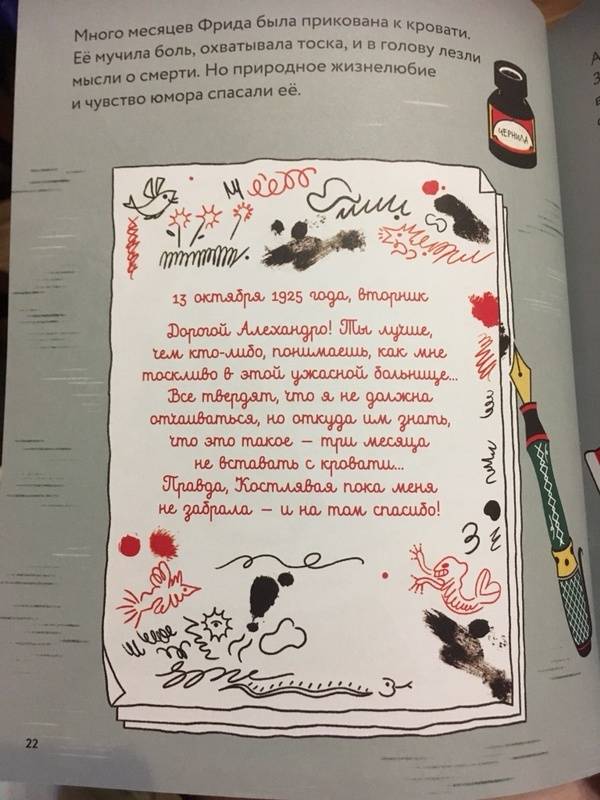 Много месяцев Фрида была прикована к кровати.
Её мучила боль, охватывала тоска, и в голову лезли
мысли о смерти. Но природное жизнелюбие
и чувство юмора спасали её.
ЧЕРНИЛА
13 октября 1925 года, вторник
Дорогой Алехандро! Ты лучше,
чем кто-либо, понимаешь, как мне
тоскливо в этой ужасной больнице...
Все твердят, что я не должна
отчаиваться, но откуда им знать,
что это такое — три месяца
не вставать с кровати...
Правда, Костлявая пока меня
не забрала — и на том спасибо!
22